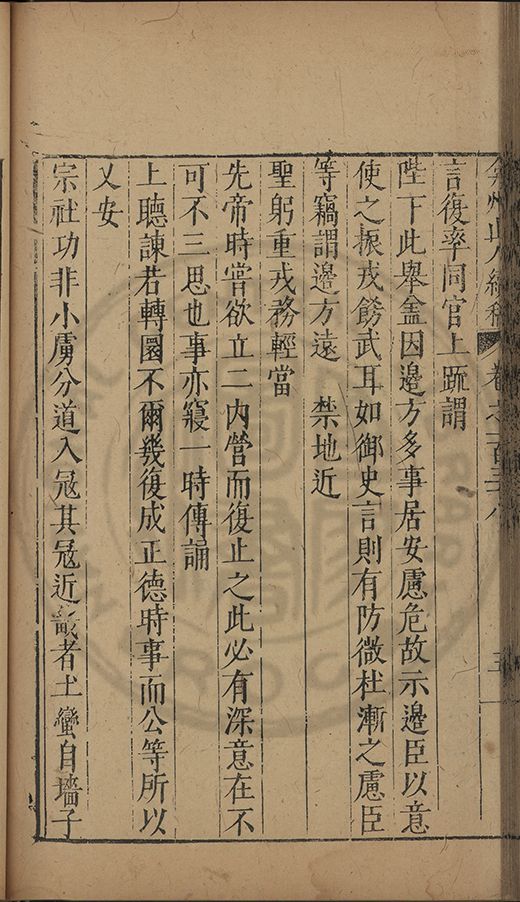 弇州山人續稿 卷之一百三十八 五
言復率同官上疏謂
陛下此舉盖因邊方多事居安慮危故示邊臣以意
使之振戎飭武耳如御史言則有防微杜漸之慮臣
等竊謂邊方遠 禁地近
聖躬重戎務輕當
先帝時嘗欲立二內營而復止之此必有深意在不
可不三思也事亦寢一時傳誦
上聽諫若轉圜不爾幾復成正德時事而公等所以
乂安
宗社功非小虜分道入冦其冦近畿者土蠻自墻子